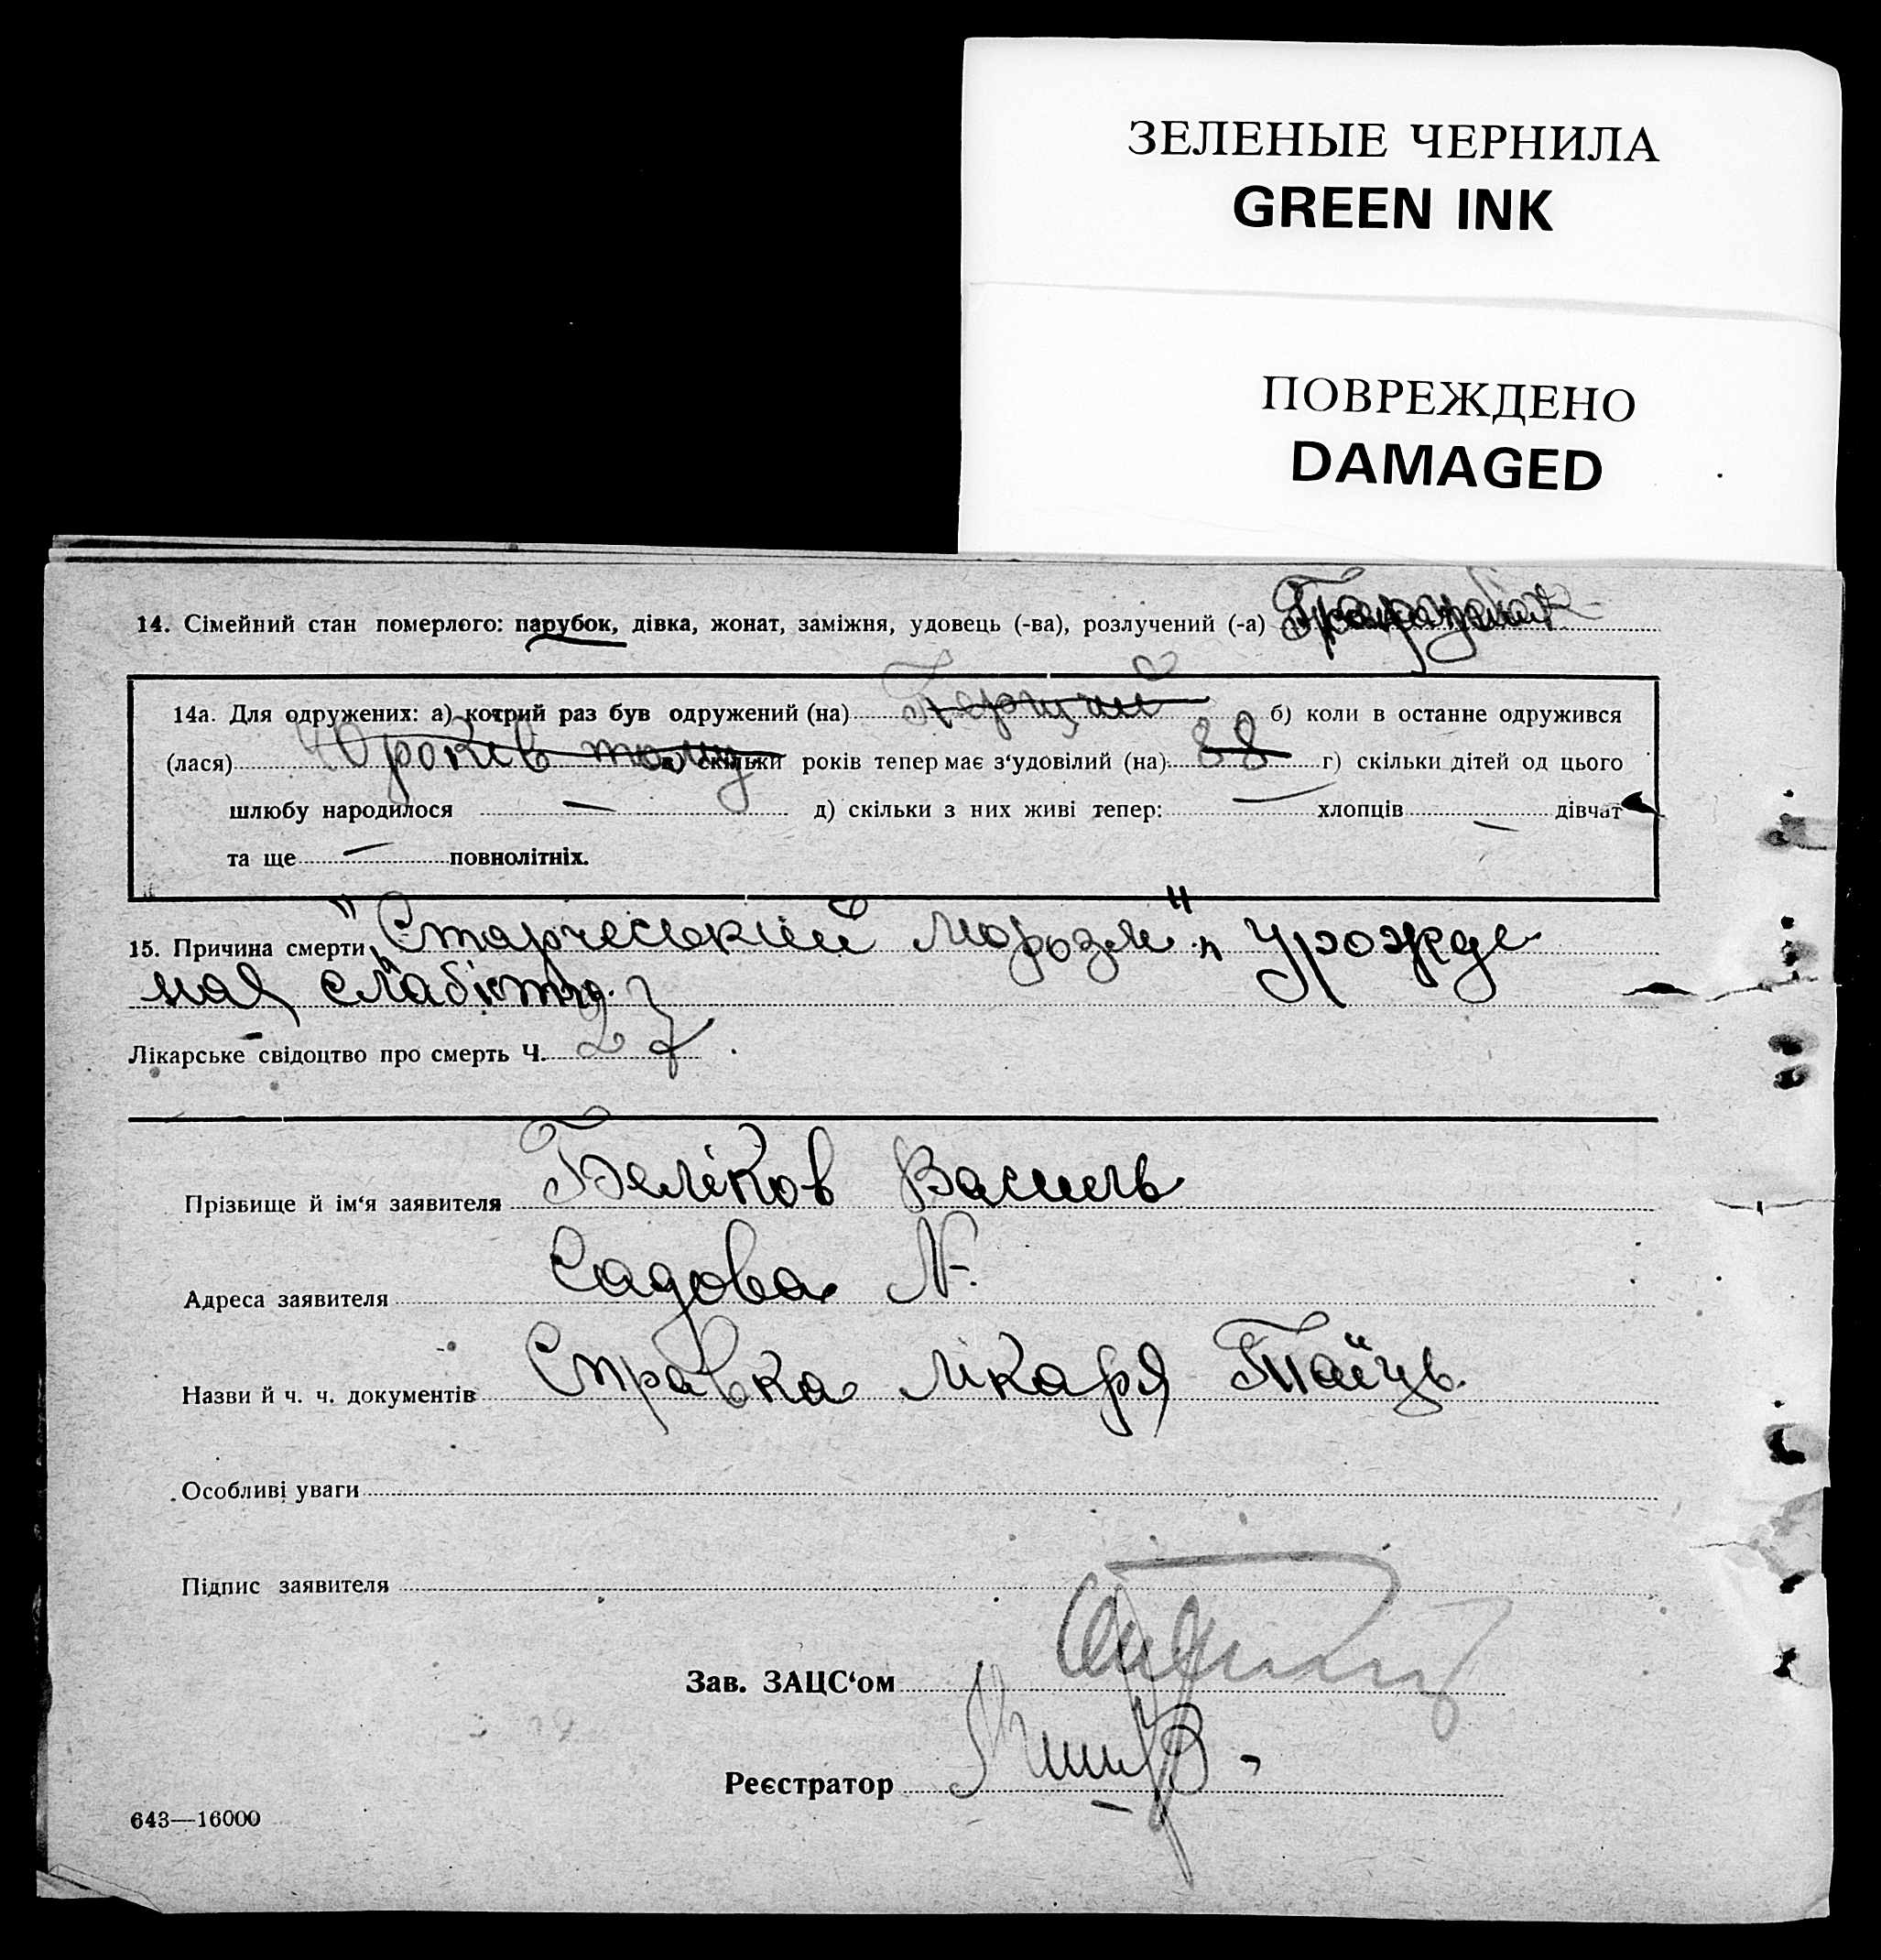 ЗЕЛЕНЫЕ ЧЕРНИЛА
GREEN INK
ПОВРЕЖДЕНО
DAMAGED
14. Сімейний стан померлого: парубок, дівка, жонат, заміжня, удовець (-ва), розлучений (-а)
14а. Для одружених: а) котрий раз був одружений (на) Перший б) коли в останне одружився
(лася) років тому в) скільки років тепер має з‘удовілий (на) 88 г) скільки дітей од цього
шлюбу народилося — д) скільки з них живі тепер: — хлопців — дівчат
та ще — повнолітніх.
15. Причина смерти „Старчеськийморозм" „Урожде
ная слабість
Лікарське свідоцтво про смерть Ч. 27.
Прізвище й ім‘я заявителя Беліков Василь
Адреса заявителя Садова №
Назви й ч. ч. документів Справка лікаря Таїць.
Особливі уваги
Підпис заявителя
Зав. ЗАЦС‘ом
Реєстратор
643—16000